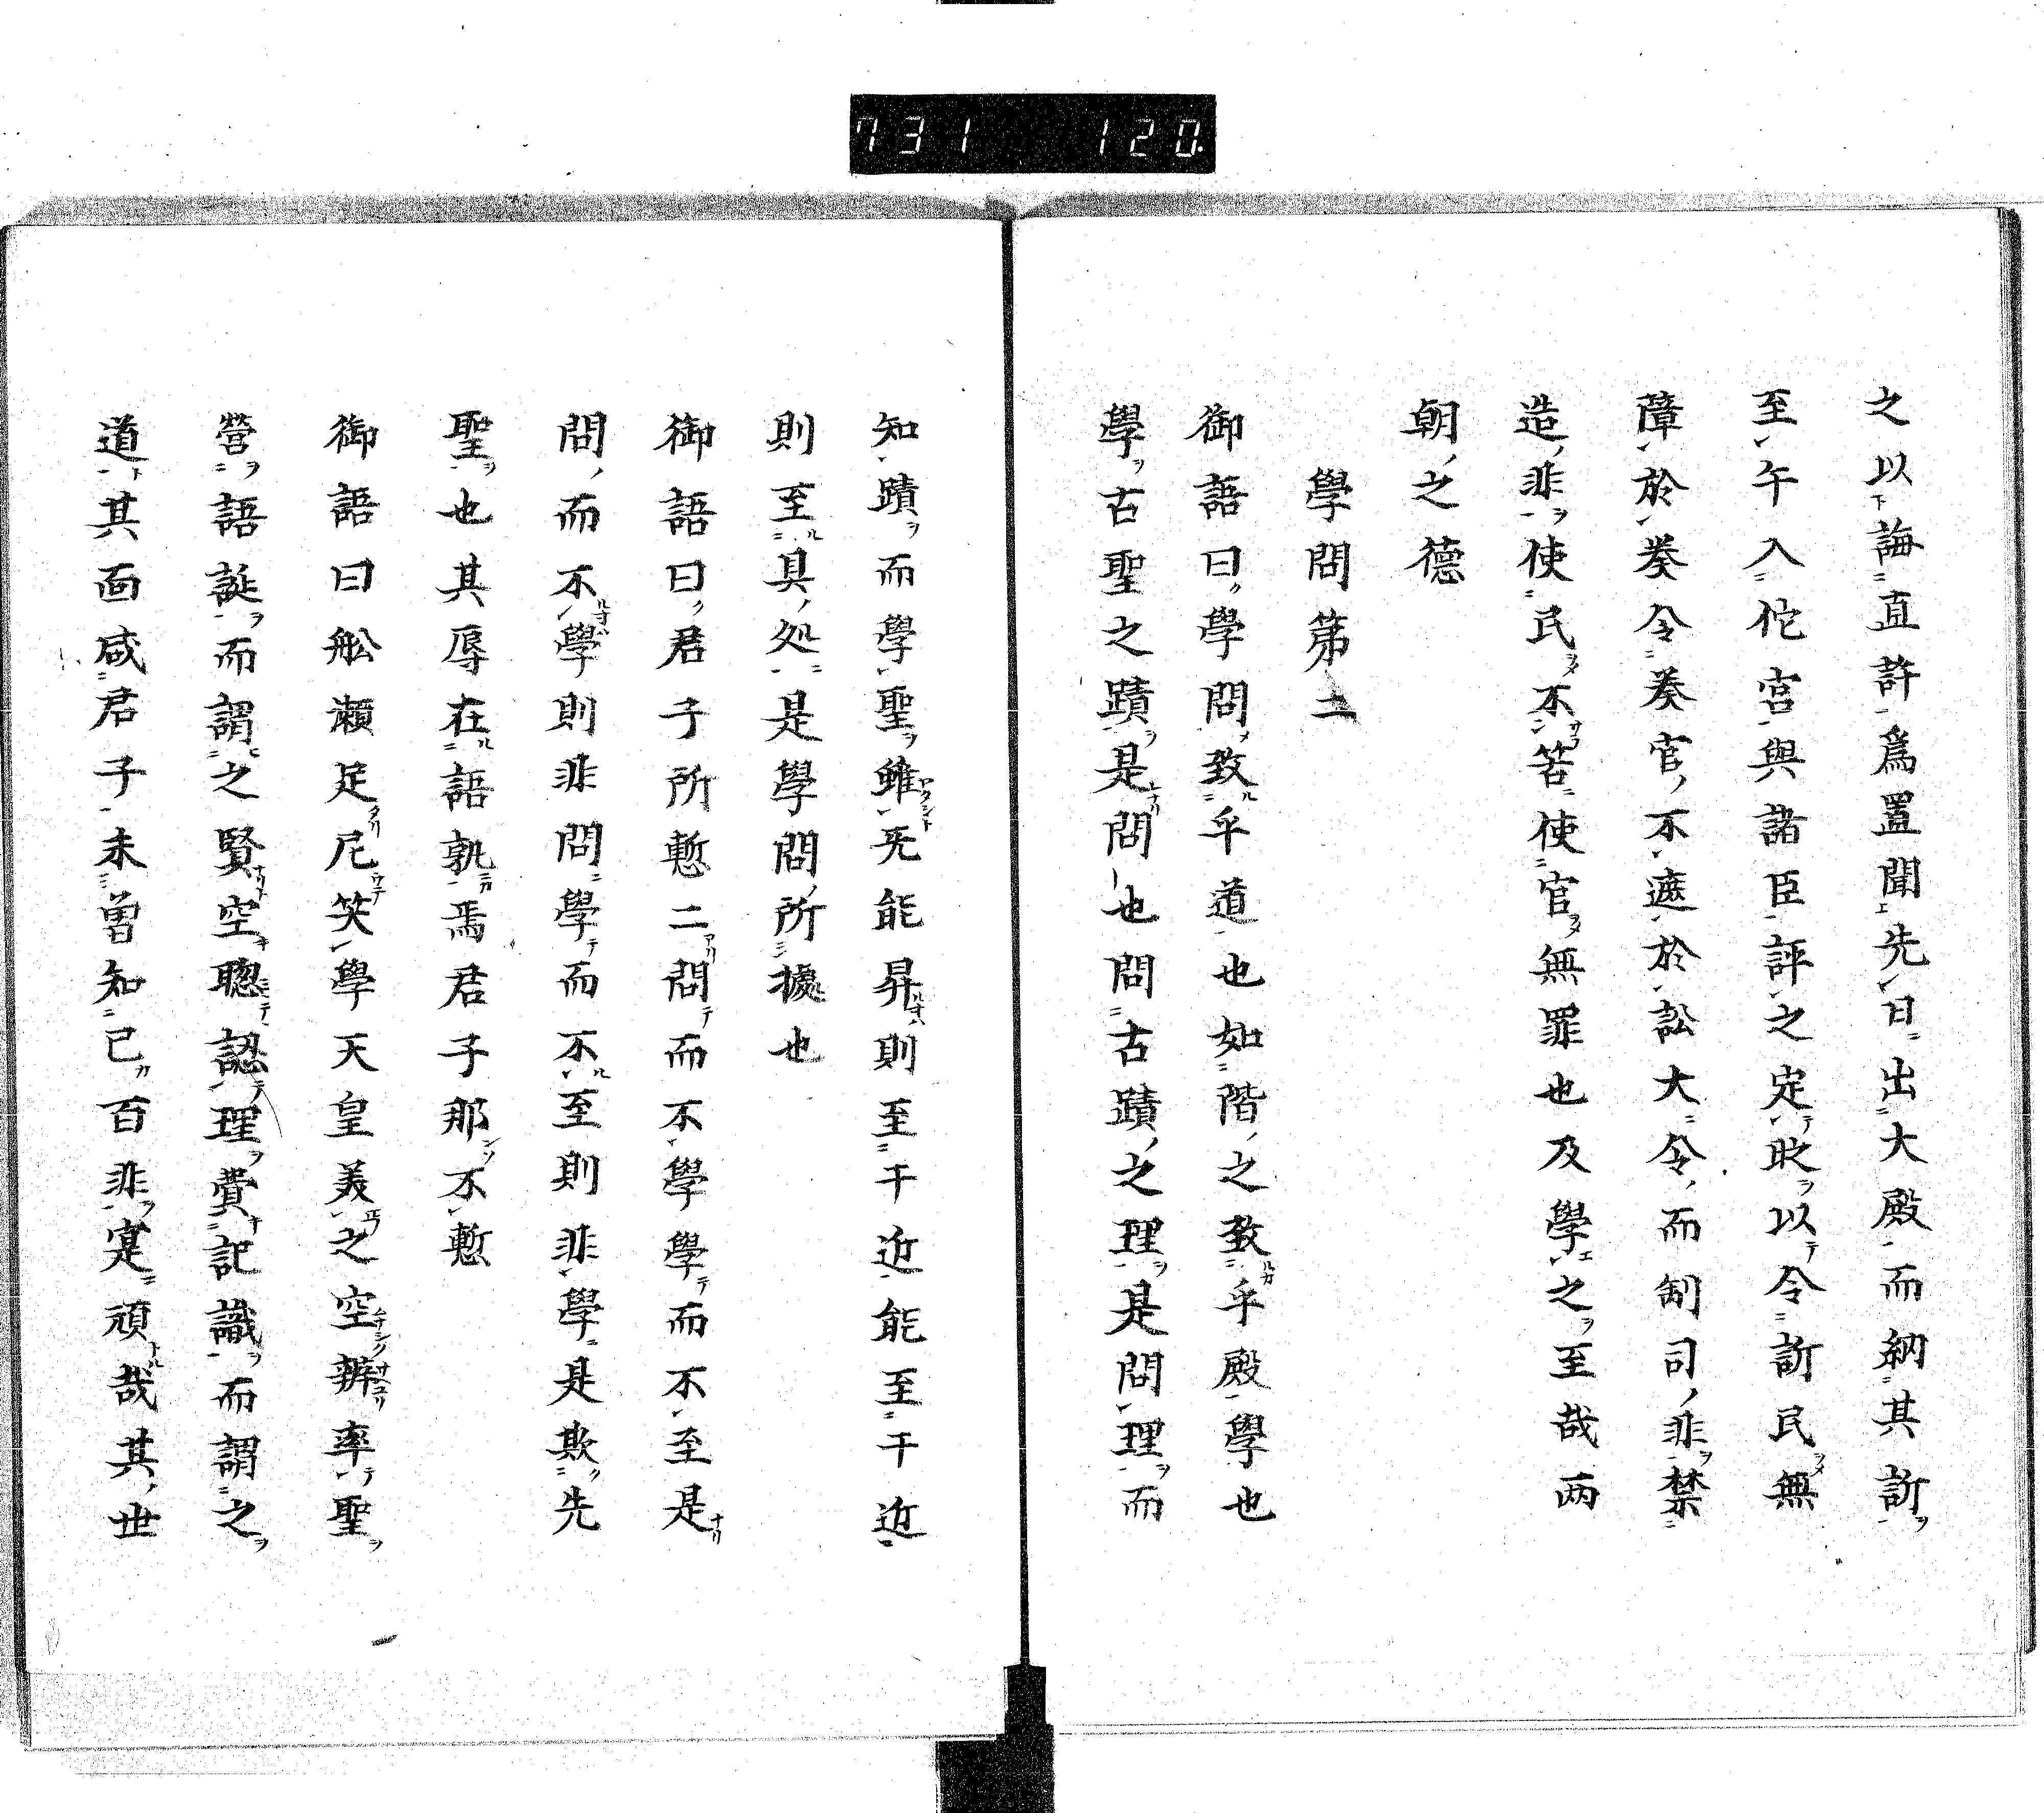 731 120
之以誨直許為置聞先日出大殿而納其訴
至午入佗宮與諸臣評之定以令訴民無
障於奏令奏官不遮於訟大令而制司非禁
造非使民不苦使官無罪也及學之至哉两
朝之德
學問第二
御語曰學問致乎道也如階之致乎殿學也
學古聖之蹟是問也問古蹟之理是問理而
知蹟而學聖雖旡能昇則至于近能至于近
則至具処是學問所據也
御語曰君子所慙二問而不學學而不至是
問而不學則非問學而不至則非學是欺先
聖也其辱在語孰焉君子那不慙
御語曰舩瀬足尼笑學天皇美之空辨率聖
營語誕而謂之賢空聰認理費記識而謂之
道其面咸君子未曽知己百非寔頑哉其世